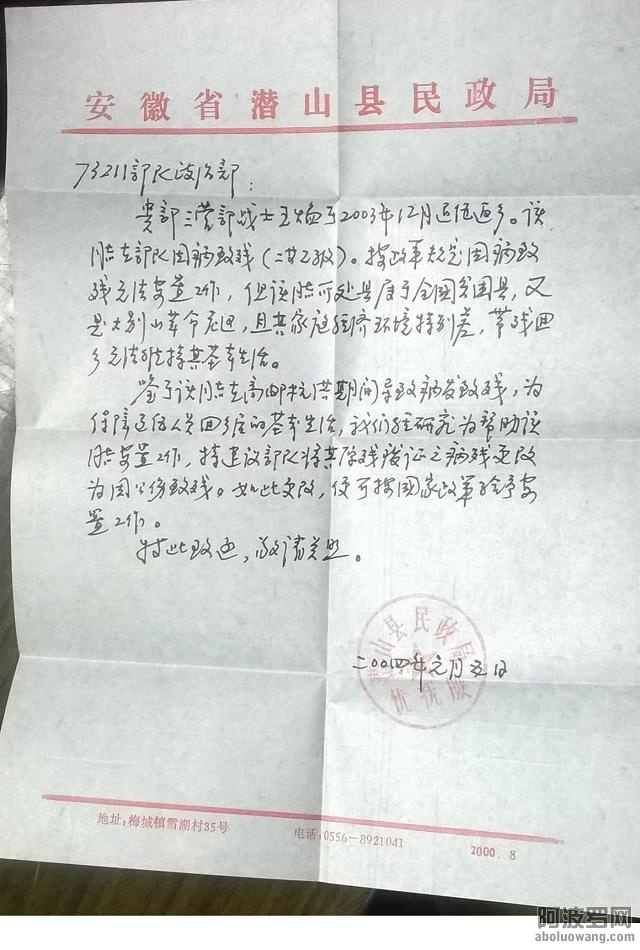 安徽省潜山县民政局
73211部队政治部：
贵部三营部战士王焰于2003年12月退伍返乡。该
同志在部队因病致残（二等乙级）。按政策规定因病致
残无法安置工作，但该同志所处县属于全国贫困县，又
是大别山革命老区，且其家庭经济环境特别差，带残回
乡无法维持其基本生活。
鉴于该同志在高邮抗洪期间导致病发致残，为
保障退伍人员回乡后的基本生活，我们经研究为帮助该
同志安置工作，特建议部队将其原残废证之病残更改
为因公伤致残。如此更改，便可按国家政策给予安
置工作。
特此致函，敬请关照。
二00四年元月五日
潜山县民政局
优抚股
地址：梅城镇雪湖村35号
电话：0556-8921041
2000.8
阿波罗网
aboluowang.com